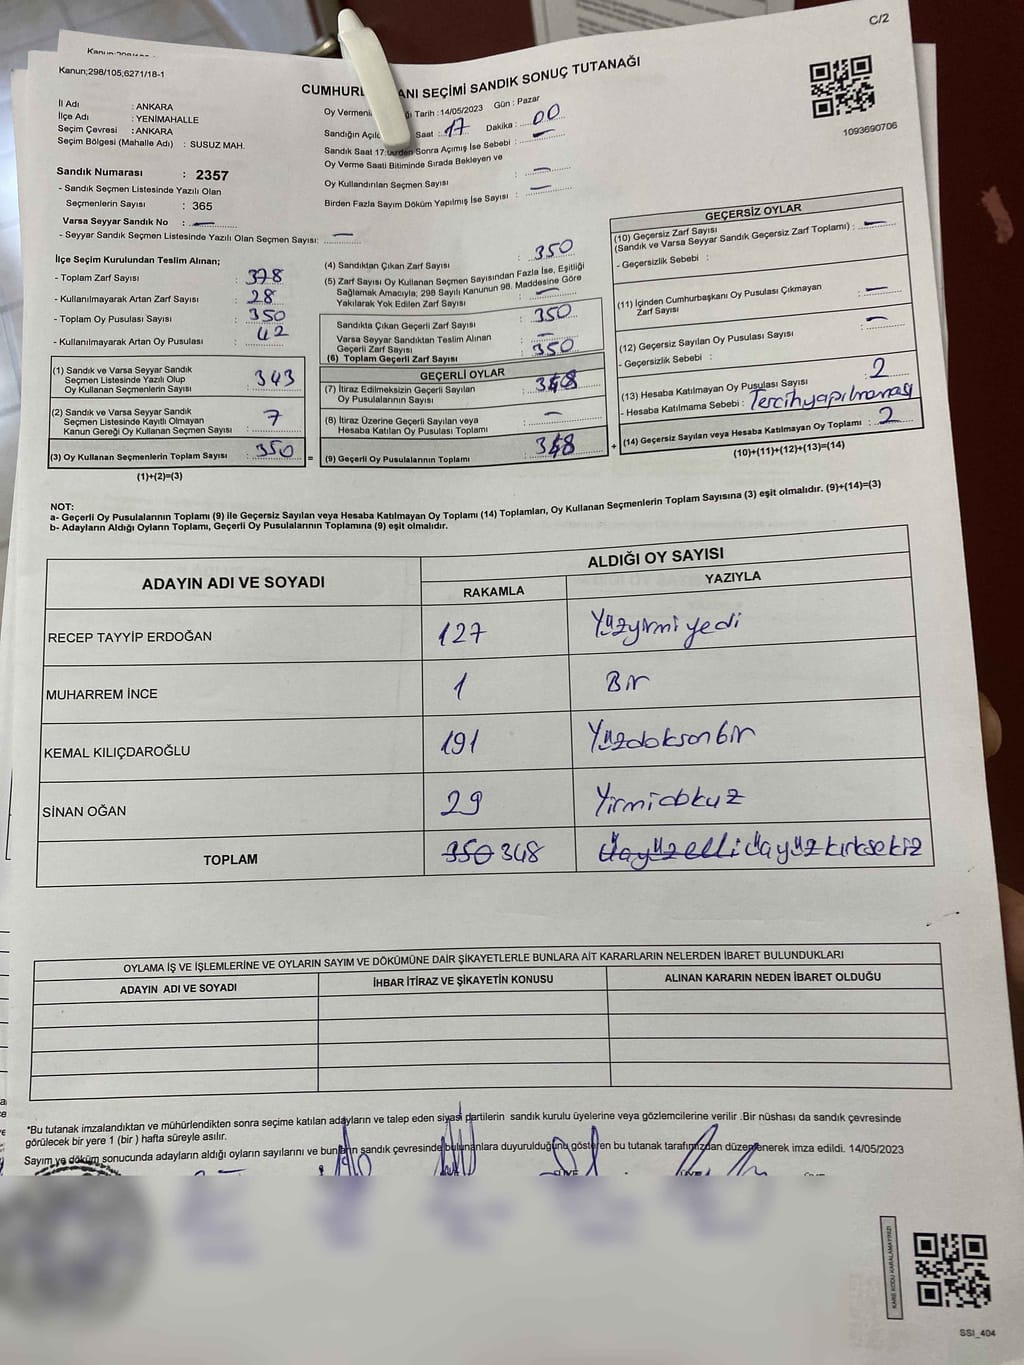 C/2
Kanun;298/105;6271/18-1
CUMHUR ANI SEÇİMİ SANDIK SONUÇ TUTANAĞI
1093690706
İl Adı : ANKARA
İlçe Adı : YENİMAHALLE
Seçim Çevresi : ANKARA
Seçim Bölgesi (Mahalle Adı) : SUSUZ MAH.
Oy Vermeni ği Tarih : 14/05/2023 Gün : Pazar
Sandığın Açılı Saat : 17 Dakika : 00
Sandık Saat 17:00'den Sonra Açımış İse Sebebi : —
Oy Verme Saati Bitiminde Sırada Bekleyen ve
Oy Kullandırılan Seçmen Sayısı : —
Birden Fazla Sayım Döküm Yapılmış İse Sayısı : —
Sandık Numarası : 2357
- Sandık Seçmen Listesinde Yazılı Olan
Seçmenlerin Sayısı : 365
Varsa Seyyar Sandık No : —
- Seyyar Sandık Seçmen Listesinde Yazılı Olan Seçmen Sayısı: —
İlçe Seçim Kurulundan Teslim Alınan;
- Toplam Zarf Sayısı : 378
- Kullanılmayarak Artan Zarf Sayısı : 28
- Toplam Oy Pusulası Sayısı : 350
- Kullanılmayarak Artan Oy Pusulası : 42
(1) Sandık ve Varsa Seyyar Sandık
Seçmen Listesinde Yazılı Olup
Oy Kullanan Seçmenlerin Sayısı : 343
(2) Sandık ve Varsa Seyyar Sandık
Seçmen Listesinde Kayıtlı Olmayan
Kanun Gereği Oy Kullanan Seçmen Sayısı : 7
(3) Oy Kullanan Seçmenlerin Toplam Sayısı : 350
(1)+(2)=(3)
(4) Sandıktan Çıkan Zarf Sayısı : 350
(5) Zarf Sayısı Oy Kullanan Seçmen Sayısından Fazla İse, Eşitliği
Sağlamak Amacıyla; 298 Sayılı Kanunun 98. Maddesine Göre
Yakılarak Yok Edilen Zarf Sayısı : —
Sandıkta Çıkan Geçerli Zarf Sayısı : 350
Varsa Seyyar Sandıktan Teslim Alınan
Geçerli Zarf Sayısı : —
(6) Toplam Geçerli Zarf Sayısı : 350
GEÇERLİ OYLAR
(7) İtiraz Edilmeksizin Geçerli Sayılan
Oy Pusulalarının Sayısı : 348
(8) İtiraz Üzerine Geçerli Sayılan veya
Hesaba Katılan Oy Pusulası Toplamı : —
(9) Geçerli Oy Pusulalarının Toplamı : 348
GEÇERSİZ OYLAR
(10) Geçersiz Zarf Sayısı
(Sandık ve Varsa Seyyar Sandık Geçersiz Zarf Toplamı) : —
- Geçersizlik Sebebi :
(11) İçinden Cumhurbaşkanı Oy Pusulası Çıkmayan
Zarf Sayısı : —
(12) Geçersiz Sayılan Oy Pusulası Sayısı : —
- Geçersizlik Sebebi :
(13) Hesaba Katılmayan Oy Pusulası Sayısı : 2
- Hesaba Katılmama Sebebi : Tercih yapılmaması
(14) Geçersiz Sayılan veya Hesaba Katılmayan Oy Toplamı : 2
(10)+(11)+(12)+(13)=(14)
NOT:
a- Geçerli Oy Pusulalarının Toplamı (9) ile Geçersiz Sayılan veya Hesaba Katılmayan Oy Toplamı (14) Toplamları, Oy Kullanan Seçmenlerin Toplam Sayısına (3) eşit olmalıdır. (9)+(14)=(3)
b- Adayların Aldığı Oyların Toplamı, Geçerli Oy Pusulalarının Toplamına (9) eşit olmalıdır.
ADAYIN ADI VE SOYADI
ALDIĞI OY SAYISI
RAKAMLA YAZIYLA
RECEP TAYYİP ERDOĞAN 127 Yüzyirmi yedi
MUHARREM İNCE 1 Bir
KEMAL KILIÇDAROĞLU 191 Yüzdoksanbir
SİNAN OĞAN 29 Yirmidokuz
TOPLAM 350 348 Üçyüzelli Üçyüzkırksekiz
OYLAMA İŞ VE İŞLEMLERİNE VE OYLARIN SAYIM VE DÖKÜMÜNE DAİR ŞİKAYETLERLE BUNLARA AİT KARARLARIN NELERDEN İBARET BULUNDUKLARI
ADAYIN ADI VE SOYADI İHBAR İTİRAZ VE ŞİKAYETİN KONUSU ALINAN KARARIN NEDEN İBARET OLDUĞU
*Bu tutanak imzalandıktan ve mühürlendikten sonra seçime katılan adayların ve talep eden siyasi partilerin sandık kurulu üyelerine veya gözlemcilerine verilir .Bir nüshası da sandık çevresinde
görülecek bir yere 1 (bir ) hafta süreyle asılır.
Sayım ve döküm sonucunda adayların aldığı oyların sayılarını ve bunların sandık çevresinde bulunanlara duyurulduğunu gösteren bu tutanak tarafımızdan düzenlenerek imza edildi. 14/05/2023
KARE KODU KARALAMAYINIZ!
SSI_404